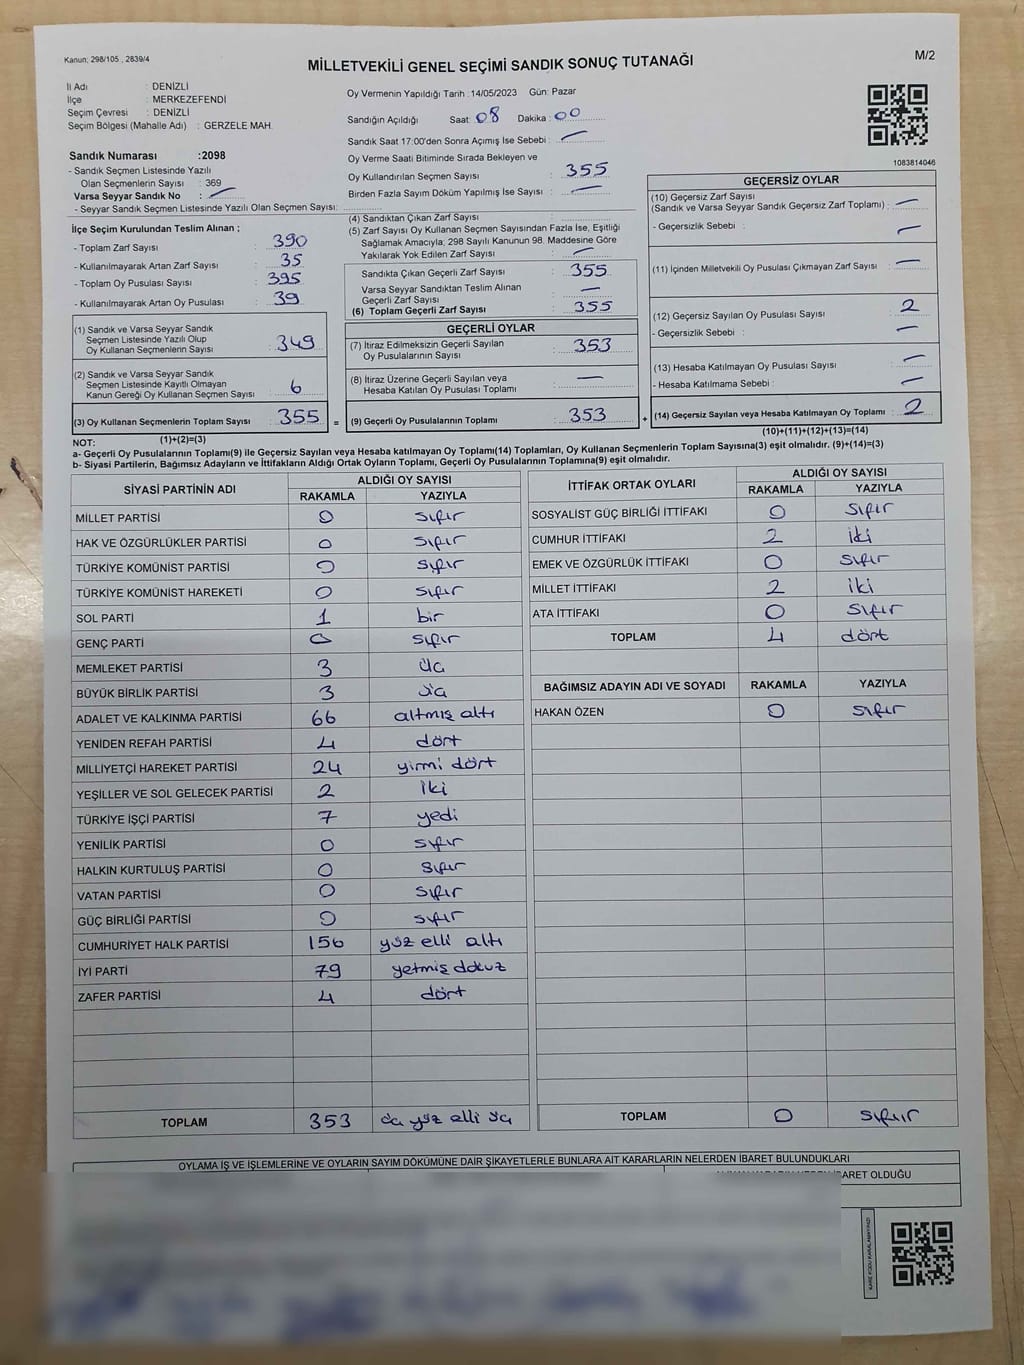 Kanun; 298/105 , 2839/4
M/2
MİLLETVEKİLİ GENEL SEÇİMİ SANDIK SONUÇ TUTANAĞI
İl Adı : DENİZLİ
İlçe : MERKEZEFENDİ
Seçim Çevresi : DENİZLİ
Seçim Bölgesi (Mahalle Adı) : GERZELE MAH.
Sandık Numarası :2098
- Sandık Seçmen Listesinde Yazılı
Olan Seçmenlerin Sayısı : 369
Varsa Seyyar Sandık No : —
- Seyyar Sandık Seçmen Listesinde Yazılı Olan Seçmen Sayısı:
İlçe Seçim Kurulundan Teslim Alınan ;
- Toplam Zarf Sayısı : 390
- Kullanılmayarak Artan Zarf Sayısı : 35
- Toplam Oy Pusulası Sayısı : 395
- Kullanılmayarak Artan Oy Pusulası : 39
(1) Sandık ve Varsa Seyyar Sandık
Seçmen Listesinde Yazılı Olup
Oy Kullanan Seçmenlerin Sayısı : 349
(2) Sandık ve Varsa Seyyar Sandık
Seçmen Listesinde Kayıtlı Olmayan
Kanun Gereği Oy Kullanan Seçmen Sayısı : 6
(3) Oy Kullanan Seçmenlerin Toplam Sayısı : 355
(1)+(2)=(3)
Oy Vermenin Yapıldığı Tarih :14/05/2023 Gün: Pazar
Sandığın Açıldığı Saat: 08 Dakika : 00
Sandık Saat 17:00'den Sonra Açımış İse Sebebi : —
Oy Verme Saati Bitiminde Sırada Bekleyen ve
Oy Kullandırılan Seçmen Sayısı : 355
Birden Fazla Sayım Döküm Yapılmış İse Sayısı : —
(4) Sandıktan Çıkan Zarf Sayısı :
(5) Zarf Sayısı Oy Kullanan Seçmen Sayısından Fazla İse, Eşitliği
Sağlamak Amacıyla; 298 Sayılı Kanunun 98. Maddesine Göre
Yakılarak Yok Edilen Zarf Sayısı : —
Sandıkta Çıkan Geçerli Zarf Sayısı : 355
Varsa Seyyar Sandıktan Teslim Alınan
Geçerli Zarf Sayısı : —
(6) Toplam Geçerli Zarf Sayısı : 355
GEÇERLİ OYLAR
(7) İtiraz Edilmeksizin Geçerli Sayılan
Oy Pusulalarının Sayısı : 353
(8) İtiraz Üzerine Geçerli Sayılan veya
Hesaba Katılan Oy Pusulası Toplamı : —
= (9) Geçerli Oy Pusulalarının Toplamı : 353
1083814046
GEÇERSİZ OYLAR
(10) Geçersiz Zarf Sayısı
(Sandık ve Varsa Seyyar Sandık Geçersiz Zarf Toplamı) : —
- Geçersizlik Sebebi : —
(11) İçinden Milletvekili Oy Pusulası Çıkmayan Zarf Sayısı : —
(12) Geçersiz Sayılan Oy Pusulası Sayısı : 2
- Geçersizlik Sebebi : —
(13) Hesaba Katılmayan Oy Pusulası Sayısı : —
- Hesaba Katılmama Sebebi : —
+ (14) Geçersiz Sayılan veya Hesaba Katılmayan Oy Toplamı : 2
(10)+(11)+(12)+(13)=(14)
NOT:
a- Geçerli Oy Pusulalarının Toplamı(9) ile Geçersiz Sayılan veya Hesaba katılmayan Oy Toplamı(14) Toplamları, Oy Kullanan Seçmenlerin Toplam Sayısına(3) eşit olmalıdır. (9)+(14)=(3)
b- Siyasi Partilerin, Bağımsız Adayların ve İttifakların Aldığı Ortak Oyların Toplamı, Geçerli Oy Pusulalarının Toplamına(9) eşit olmalıdır.
SİYASİ PARTİNİN ADI ALDIĞI OY SAYISI
RAKAMLA YAZIYLA
MİLLET PARTİSİ 0 sıfır
HAK VE ÖZGÜRLÜKLER PARTİSİ 0 sıfır
TÜRKİYE KOMÜNİST PARTİSİ 0 sıfır
TÜRKİYE KOMÜNİST HAREKETİ 0 sıfır
SOL PARTİ 1 bir
GENÇ PARTİ 0 sıfır
MEMLEKET PARTİSİ 3 üç
BÜYÜK BİRLİK PARTİSİ 3 üç
ADALET VE KALKINMA PARTİSİ 66 altmış altı
YENİDEN REFAH PARTİSİ 4 dört
MİLLİYETÇİ HAREKET PARTİSİ 24 yirmi dört
YEŞİLLER VE SOL GELECEK PARTİSİ 2 iki
TÜRKİYE İŞÇİ PARTİSİ 7 yedi
YENİLİK PARTİSİ 0 sıfır
HALKIN KURTULUŞ PARTİSİ 0 sıfır
VATAN PARTİSİ 0 sıfır
GÜÇ BİRLİĞİ PARTİSİ 0 sıfır
CUMHURİYET HALK PARTİSİ 156 yüz elli altı
İYİ PARTİ 79 yetmiş dokuz
ZAFER PARTİSİ 4 dört
TOPLAM 353 üç yüz elli üç
İTTİFAK ORTAK OYLARI ALDIĞI OY SAYISI
RAKAMLA YAZIYLA
SOSYALİST GÜÇ BİRLİĞİ İTTİFAKI 0 sıfır
CUMHUR İTTİFAKI 2 iki
EMEK VE ÖZGÜRLÜK İTTİFAKI 0 sıfır
MİLLET İTTİFAKI 2 iki
ATA İTTİFAKI 0 sıfır
TOPLAM 4 dört
BAĞIMSIZ ADAYIN ADI VE SOYADI RAKAMLA YAZIYLA
HAKAN ÖZEN 0 sıfır
TOPLAM 0 sıfır
OYLAMA İŞ VE İŞLEMLERİNE VE OYLARIN SAYIM DÖKÜMÜNE DAİR ŞİKAYETLERLE BUNLARA AİT KARARLARIN NELERDEN İBARET BULUNDUKLARI
İBARET OLDUĞU